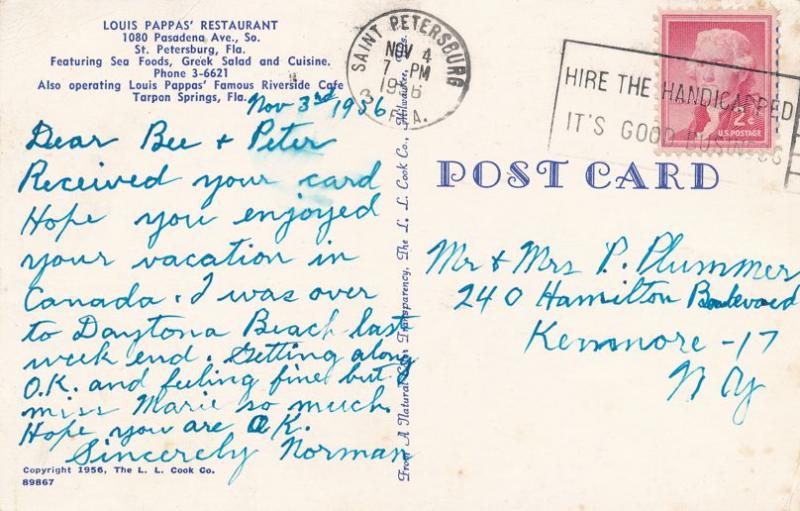 LOUIS PAPPAS' RESTAURANT
1080 Pasadena Ave., So.
St. Petersburg, Fla.
Featuring Sea Foods, Greek Salad and Cuisine.
Phone 3-6621
Also operating Louis Pappas' Famous Riverside Cafe
Tarpon Springs, Fla.
Nov 3rd 1956
Dear Bee & Peter
Received your card
Hope you enjoyed
your vacation in
Canada. I was over
to Daytona Beach last
week end. Getting along
O.K. and feeling fine but I
miss Marie so much.
Hope you are OK.
Sincerely Norman
Copyright 1956, The L. L. Cook Co.
89867
From A Natural Color Transparency, The L. L. Cook Co., Milwaukee, Wis.
SAINT PETERSBURG
NOV 4
7 PM
1956
3 FLA.
HIRE THE HANDICAPPED
IT'S GOOD BUSINESS
2¢
U.S. POSTAGE
POST CARD
Mr & Mrs P. Plummer
240 Hamilton Boulevard
Kenmore - 17
N Y